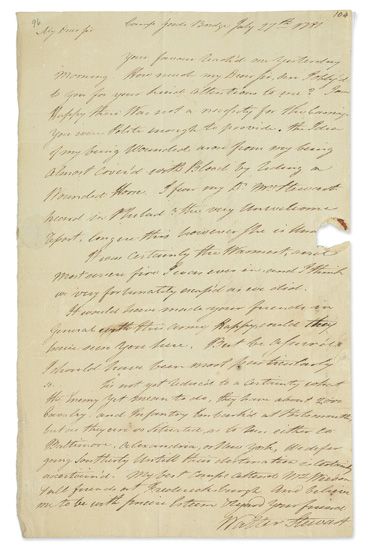 96 104
My Dear Sir Camp Goods Bridge July 27th 1781
your favour reach'd me Yesterday
Morning How much my Dear Sir, am I oblig'd
to you for your kind Attentions to me? I am
Happy there was not a necessity for the Carriage
you were Polite enough to provide, the Idea
of my being Wounded arose from my being
almost Cover'd with Blood by
Wounded Horse. I fear my Dr. Mrs Stewart
heard in Philad. the very Unwelcome
report, long ere this however she is
It was certainly the Warmest, and
most severe fire I was ever in and I think
we very fortunately escap'd as we did.
It would have made your friends in
General with this Army Happy, could they
have seen you here. But be assured
I should have been most particularly
so. Tis not yet reduced to a Certainty what
the Enemy yet mean to do, they have about 2000
Cavalry and Infantry Embarked at Portsmouth
but as they are so Situated, as to turn either to
Baltimore, Alexandria, or New York, We defer
going Southerly Untill their destination is certainly
ascertain'd. My best Comps. attend
friends at Fredericksburgh And believe
me to be with sincere Esteem & regard Your friend
Walter Stewart